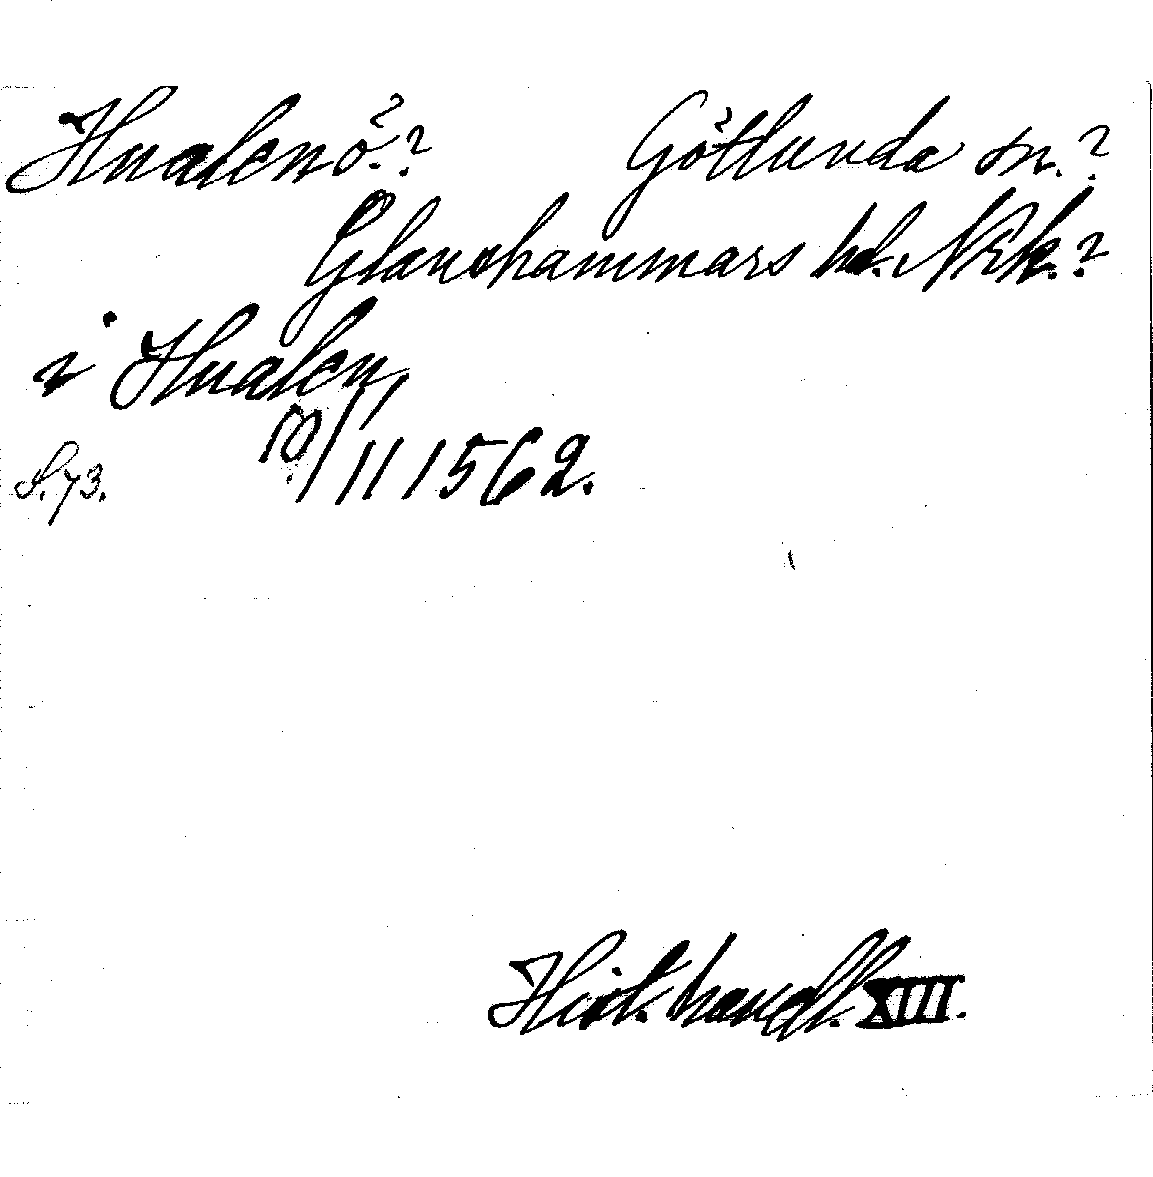 Hualenö?? Götlunda sn.?
Glanshammars hd. Nrk.?
i Hualen,
18/11 1562.
S. 73.
Hist. handl. XIII.